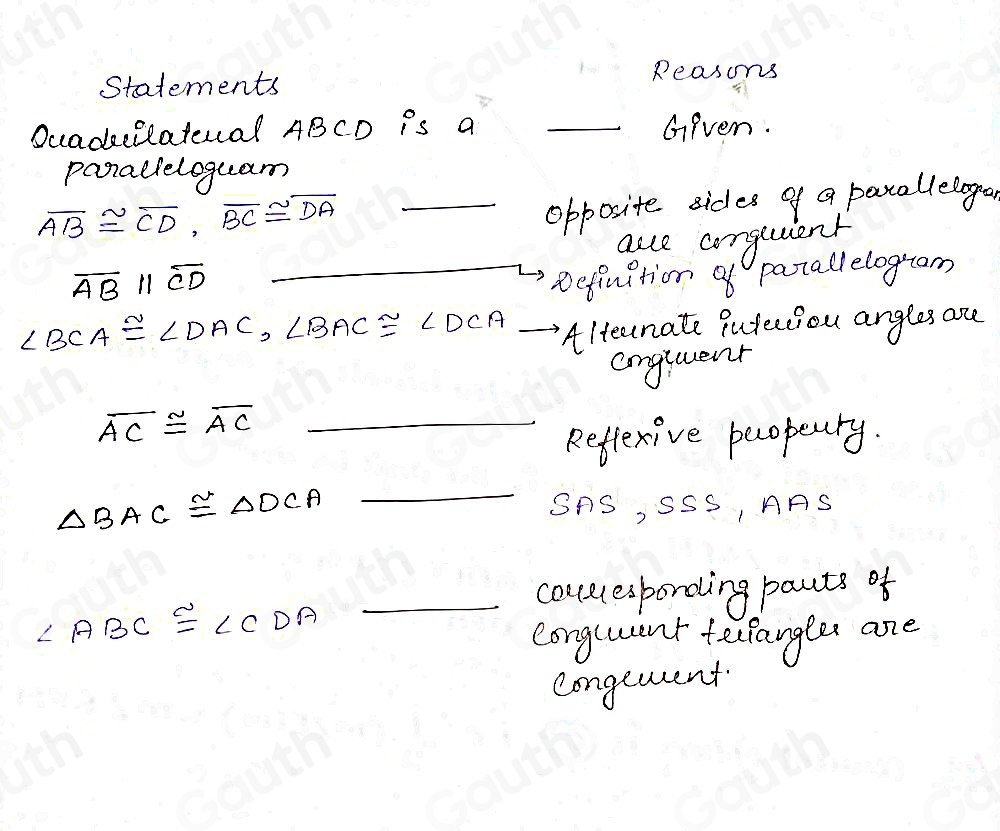 Statements Reasons
Quadrilateral ABCD is a —— Given.
parallelogram
AB ≅ CD, BC ≅ DA —— Opposite sides of a parallelogram
are congruent
AB || CD ——→ Definition of parallelogram
∠BCA ≅ ∠DAC, ∠BAC ≅ ∠DCA → Alternate interior angles are
congruent
AC ≅ AC —— Reflexive property.
△BAC ≅ △DCA —— SAS, SSS, AAS
∠ABC ≅ ∠CDA —— corresponding parts of
congruent triangles are
congruent.